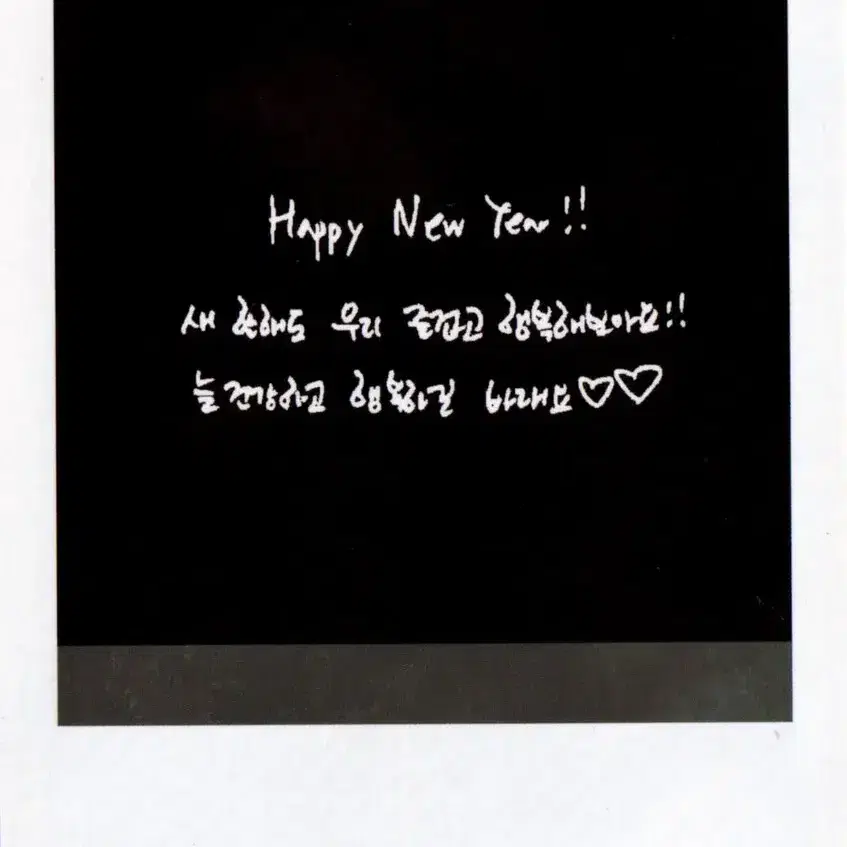 Happy New Year!!
새 한해도 우리 즐겁고 행복해보아요!!
늘 건강하고 행복하길 바래요♡♡